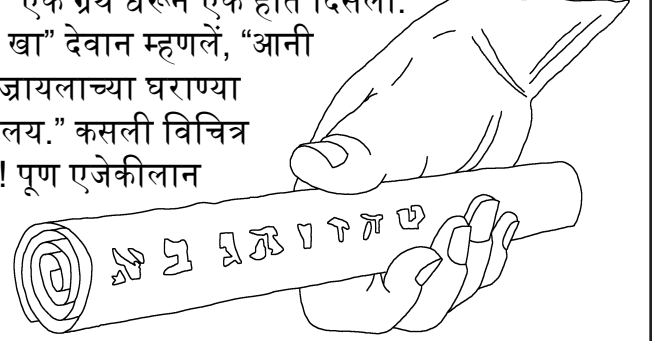 एक ग्रंथ धरून एक हात दिसलो.
खा” देवान म्हणलें, “आनी
ज्रायलाच्या घराण्या
लय.” कसली विचित्र
! पूण एजेकीलान